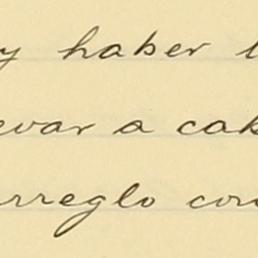 y haber l
evar a cab
rreglo con